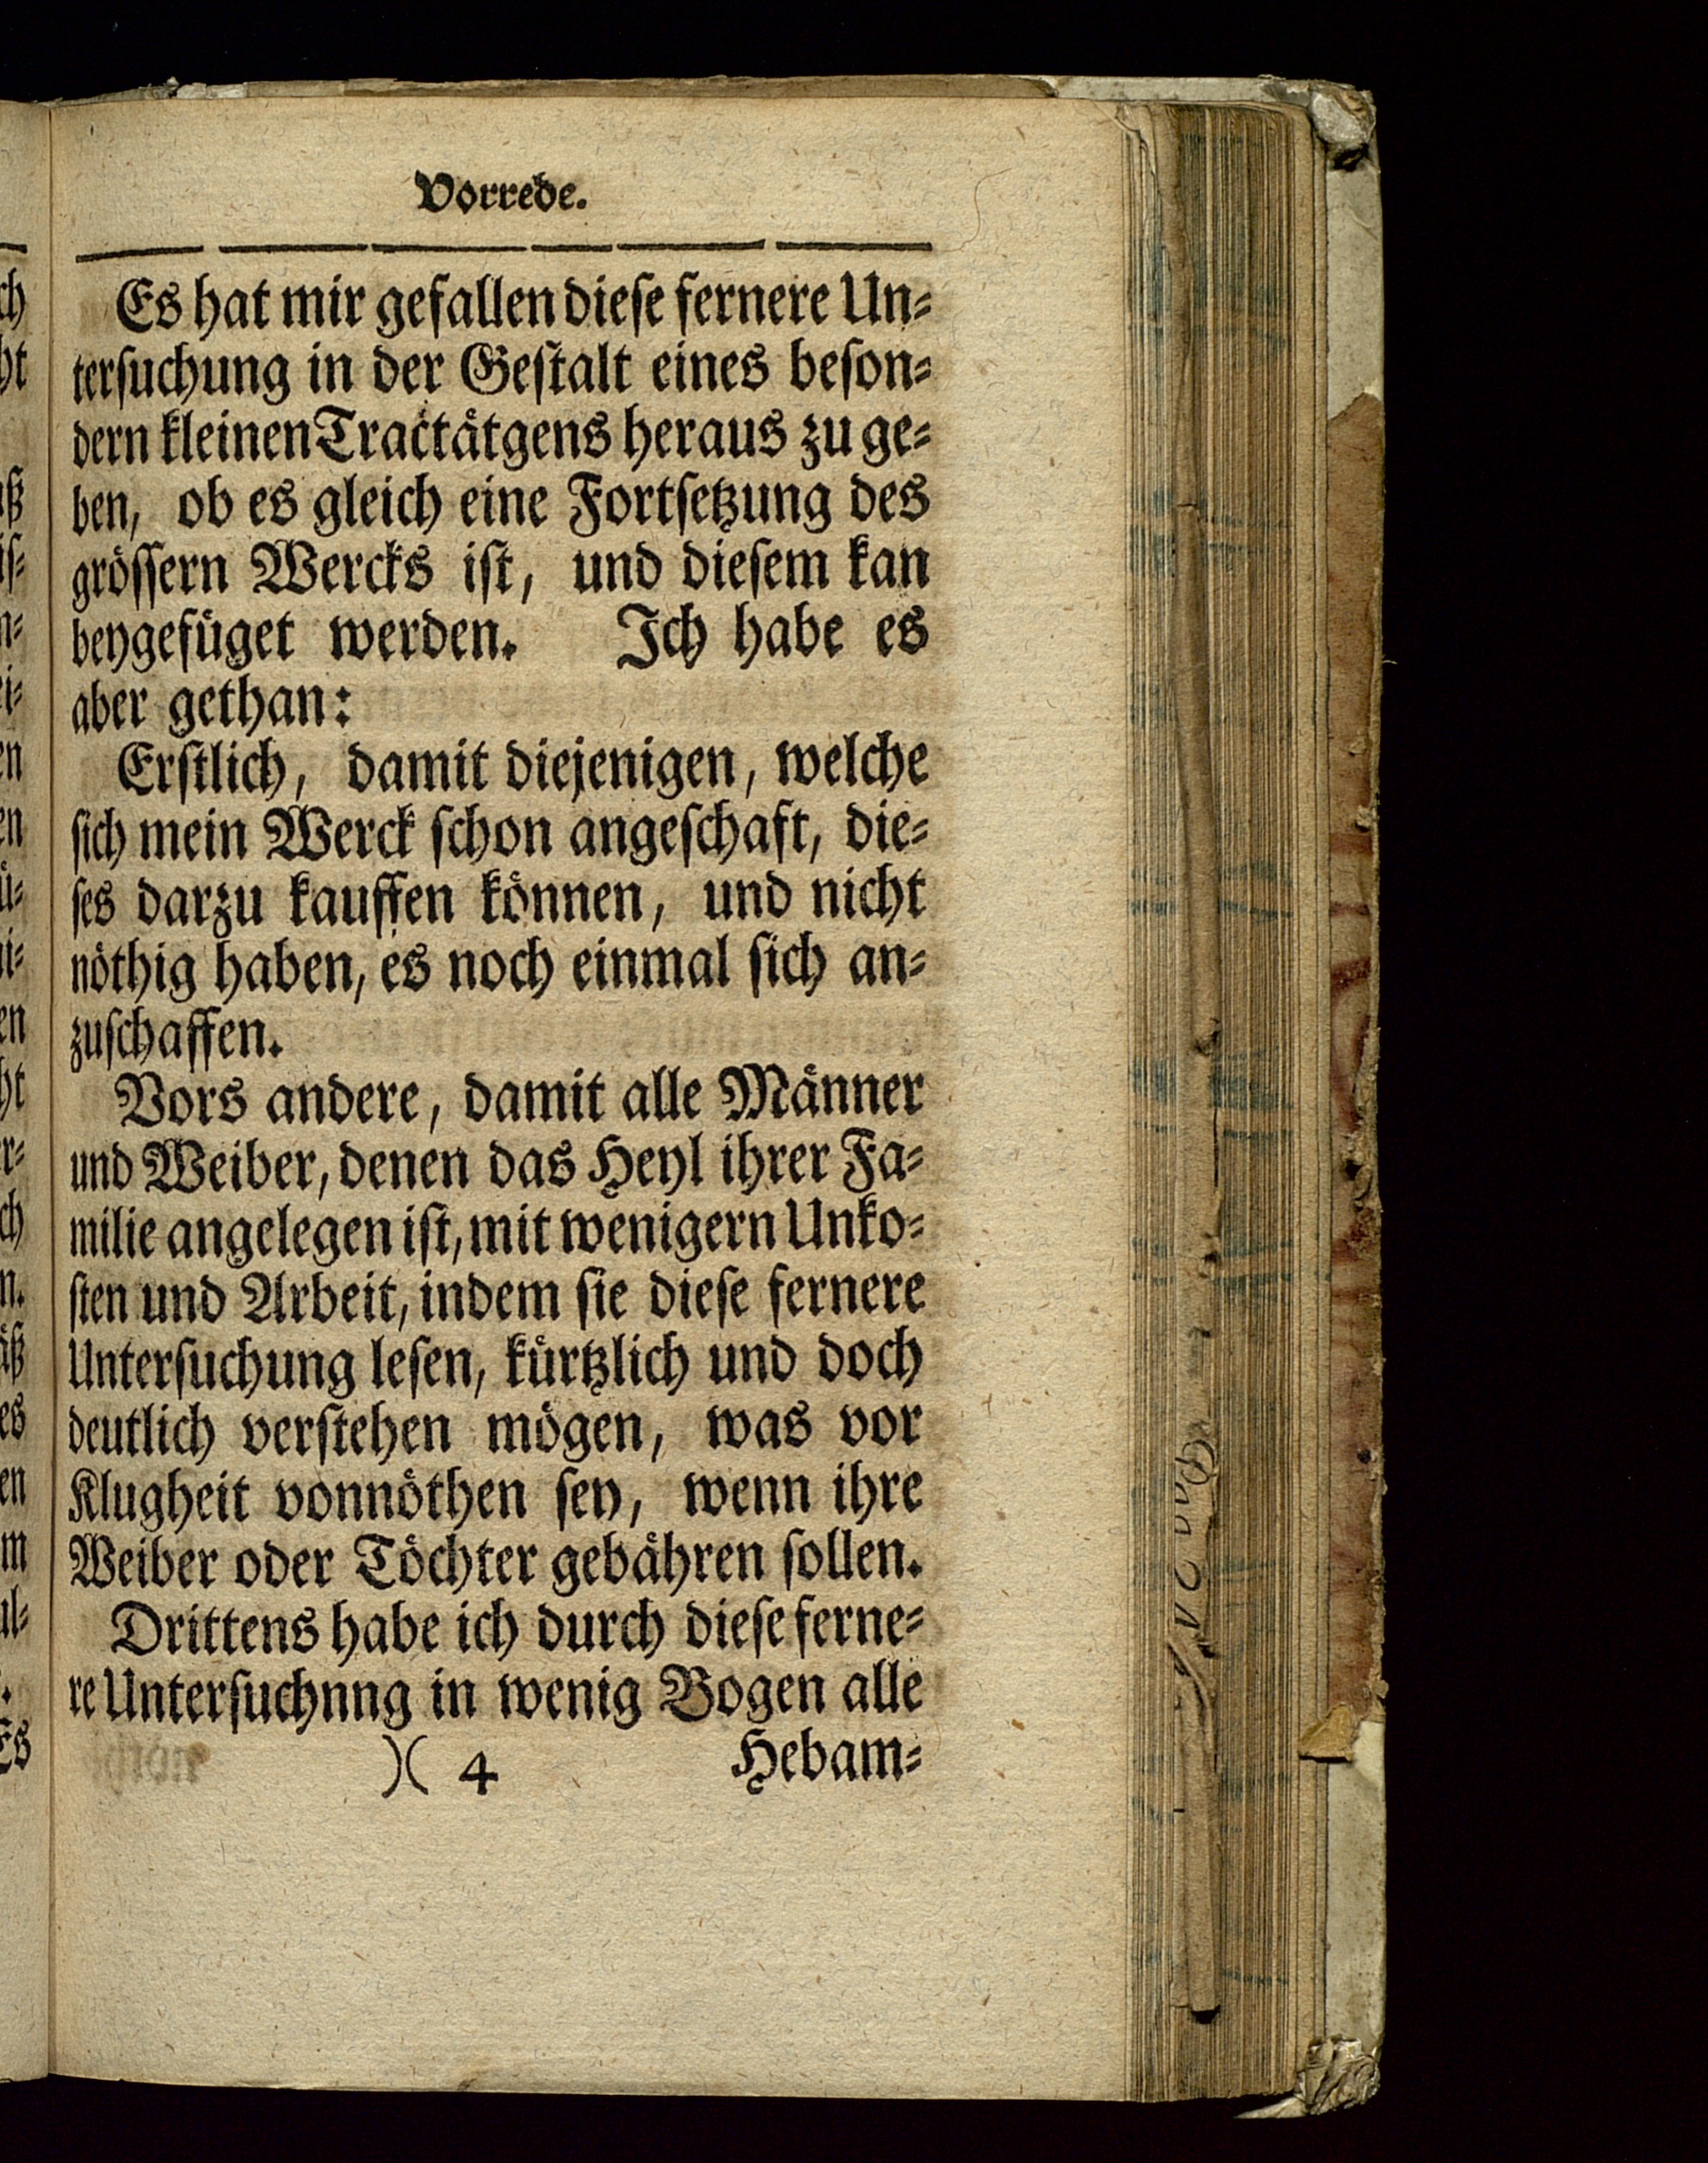 Vorrede.
Es hat mir gefallen dieſe fernere Un⸗
terſuchung in der Geſtalt eines beſon⸗
dern kleinen Tractätgens heraus zu ge⸗
ben, ob es gleich eine Fortſetzung des
gröſſern Wercks iſt, und dieſem kan
beygefüget werden. Ich habe es
aber gethan:
Erſtlich, damit diejenigen, welche
ſich mein Werck ſchon angeſchaft, die⸗
ſes darzu kauffen können, und nicht
nöthig haben, es noch einmal ſich an⸗
zuſchaffen.
Vors andere, damit alle Männer
und Weiber, denen das Heyl ihrer Fa⸗
milie angelegen iſt, mit wenigern Unko⸗
ſten und Arbeit, indem ſie dieſe fernere
Unterſuchung leſen, kürtzlich und doch
deutlich verſtehen mögen, was vor
Klugheit vonnöthen ſey, wenn ihre
Weiber oder Töchter gebähren ſollen.
Drittens habe ich durch dieſe ferne⸗
re Unterſuchnng in wenig Bogen alle
)( 4 Hebam⸗